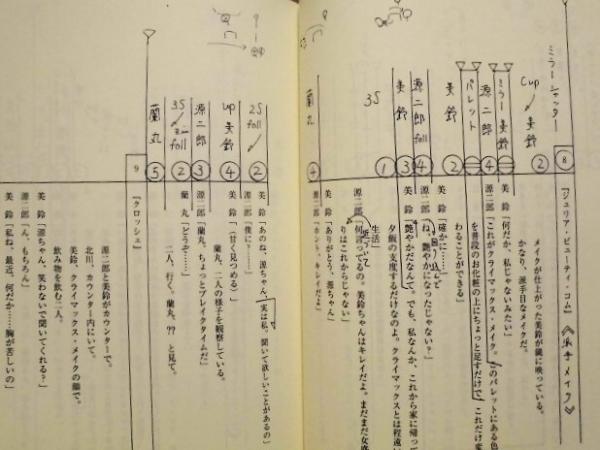 8
『ジュリア・ビューティ・コム』
《派手メイク》
メイクが仕上がった美鈴が鏡に映っている。
かなり、派手目なメイクだ。
美鈴「何だか、私じゃないみたい」
源二郎「これがクライマックス・メイク。このパレットにある色
を普段のお化粧の上にちょっと足すだけで、これだけ変
わることができる」
美鈴「確かに……」
源二郎「ね、艶やかになったじゃない？」
美鈴「艶やかだなんて。でも、私なんか、これから家に帰って
夕飯の支度するだけなのよ。クライマックスとは程遠い
生活」
源二郎「何言ってるの。美鈴ちゃんはキレイだよ。まだまだ女盛
りはこれからじゃない」
美鈴「ありがとう、源ちゃん」
源二郎「ホント、キレイだよ」
ミラーシャッター
Cup
美鈴
②
ミラー美鈴
源二郎
④
パレット
美鈴
②
源二郎
foll
④
美鈴
③
3S
①
蘭丸
④
美鈴「あのね、源ちゃん、実は私、聞いて欲しいことがあるの」
源二郎「僕に？……」
美鈴「（甘く見つめる）」
蘭丸、二人の様子を観察している。
源二郎「蘭丸、ちょっとブレイクタイムだ」
蘭丸「どうぞ……」
二人、行く。蘭丸、？？と見て。
2S
foll
②
up
美鈴
④
源二郎
③
3S
foll
②
蘭丸
⑤
9
『クロッシュ』
源二郎と美鈴がカウンターで。
北川、カウンター内にいて。
美鈴、クライマックス・メイクの顔で。
飲み物を飲む二人。
美鈴「源ちゃん、笑わないで聞いてくれる？」
源二郎「ん、もちろん」
美鈴「私ね、最近、何だか……胸が苦しいの」